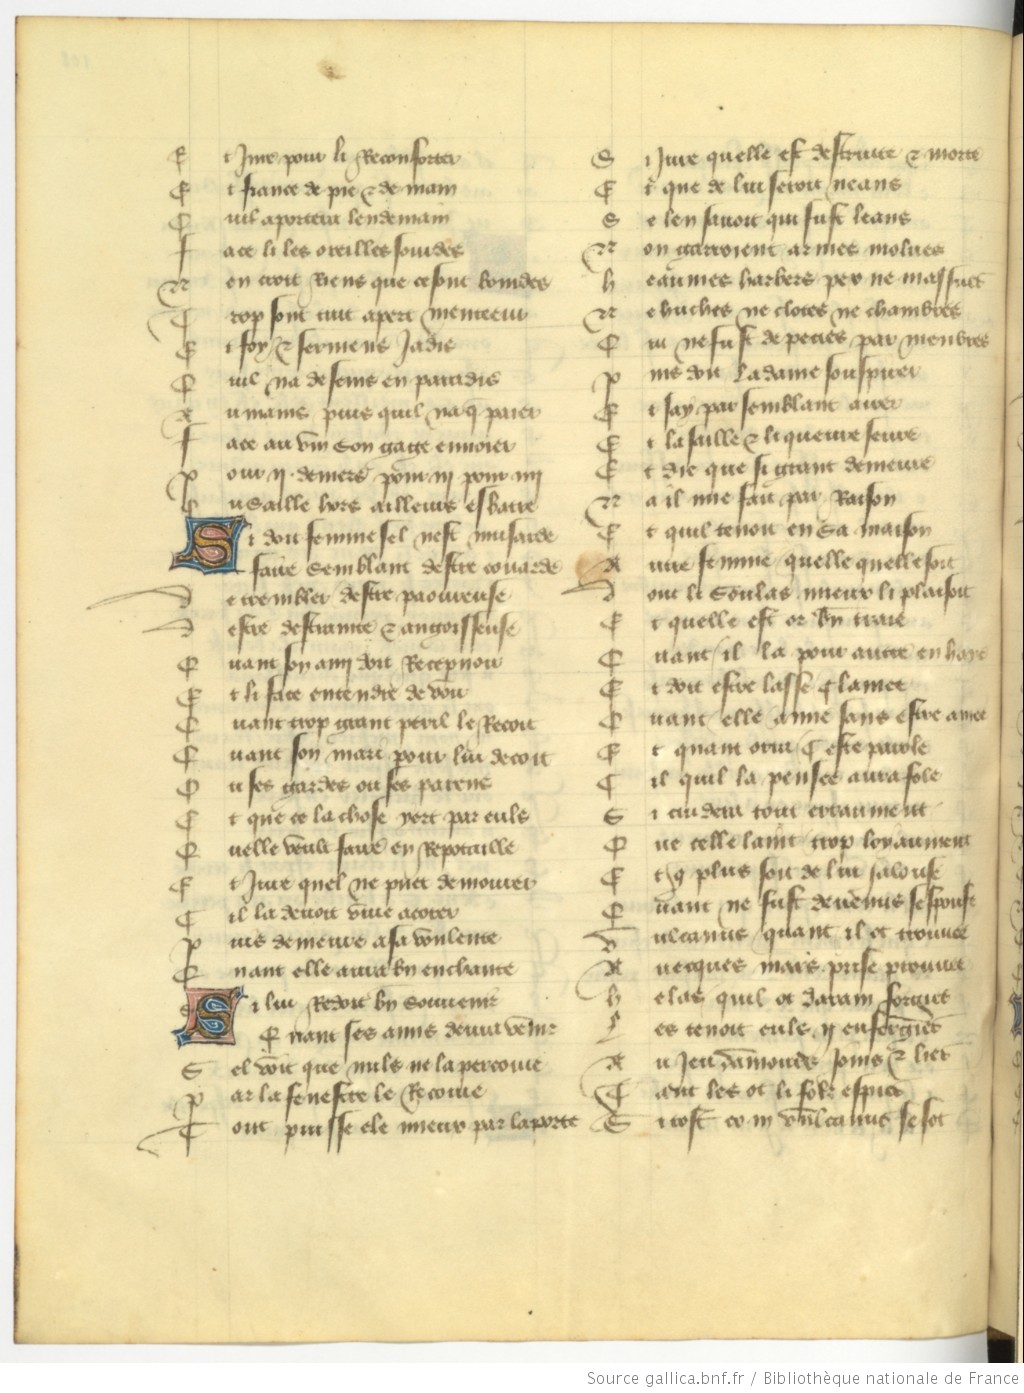 E t Jure pour li Reconforter
E t france de pie & de main
Q uil aportera lendemain
f ace li les oreilles sourdes
N en croit Riens que ce sont bourdes
T rop sont tuit apert menteeur
E t foy & sermens Jadis
Q uil na de sains en paradis
A u mains puis quil na q̄ paier
f ace au vin son gage ennoier
p our ij deniers pour iij pour iiij
O u saille hors ailleurs esbatre
S i doit femme sel nest musarde
faire semblant destre couarde
D e trembler destre paoureuse
D estre destrainte & angoisseuse
Q uant son ami doit Recepuoir
E t li face entendre de voir
Q uant trop grant peril le Recoit
Q uant son mari pour lui decoit
O u ses gardes ou ses parens
E t que ce la chose yert par euls
Q uelle veult faire en Repotaille
E t Jure quel ne puet demourer
C il la deuoit viue acorer
p uis demeure a sa voulente
Q uant elle aura bn enchante
S i lui Redoit bn souuenir
Q uant ses amis deura venir
S el voit que nuls ne la percoiue
p ar la fenestre le Recoiue
T out puisse ele mieux par la porte
S i Jure quelle est destruite & morte
E t que de lui seroit neans
S e len sauoit qui fust leans
N on garroient armes molues
h eaumes harbers pex ne massues
N e huches ne clotes ne chambres
Q ui ne fust de pecies par menbres
p uis doit la dame souspirer
E t say par semblant airer
E t lasaille & li queure seure
E t die que si grant demeure
N a il mie fait par Raison
E t quil tenoit en sa maison
A utre femme quelle quelle soit
D ont li soulas mieux li plaisoit
E t quelle est or bn traie
Q uant il la pour autre en haye
E t doit estre lasse clamee
Q uant elle aime sans estre amee
E t quant orra c este parole
C il quil la pensee aura fole
S i cuidera tout erraument
Q ue celle laint trop loyaument
E t q̄ plus soit de lui jalouse
Q uant ne fust de venus sespouse
v ulcanus quant il ot trouuee
A uecques mars prise prouuee
h e las quil ot darain forgies
L es tenoit euls ij enfergies
A u Jeu damours joins & liez
T ant les ot li fols espiez
S i tost com vulcanus se sot